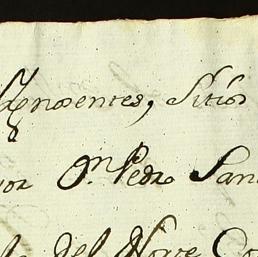 Ygnosentes, Sitios
por Dn. Pedro San
del Nove Co